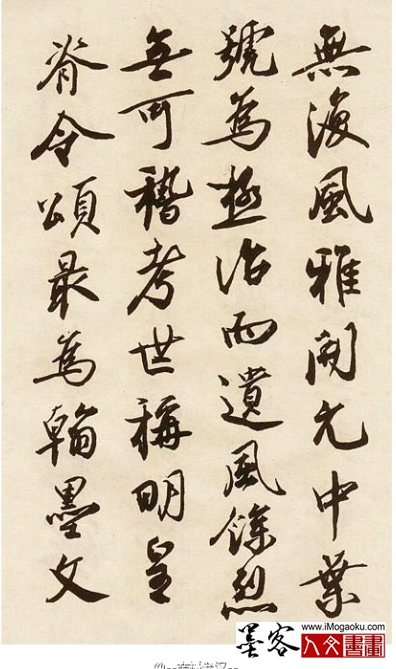 無復風雅開元中葉
號為極治而遺風餘烈
無可稽考世稱明皇
脊令頌最為翰墨文
www.iMogaoku.com
墨客人文書畫